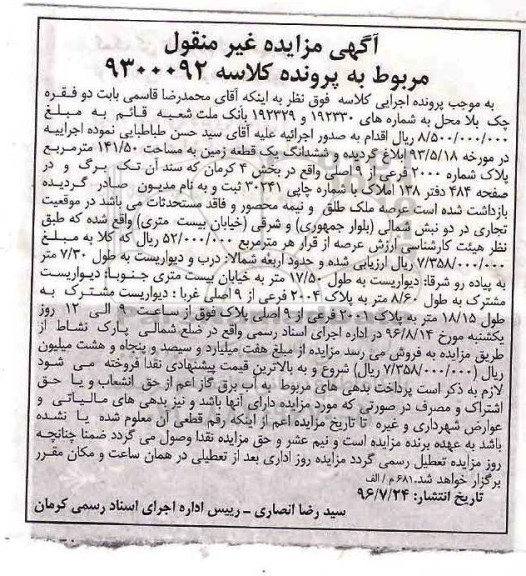 آگهی مزایده غیر منقول
مربوط به پرونده کلاسه ۹۳۰۰۰۹۲
به موجب پرونده اجرایی کلاسه فوق نظر به اینکه آقای محمدرضا قاسمی بابت دو فقره
چک بلا محل به شماره های ۱۹۲۳۳۰ و ۱۹۲۳۲۹ بانک ملت شعبه قائم به مبلغ
۸/۵۰۰/۰۰۰/۰۰۰ ریال اقدام به صدور اجرائیه علیه آقای سید حسن طباطبایی نموده اجراییه
در مورخه ۹۳/۵/۱۸ ابلاغ گردیده و ششدانگ یک قطعه زمین به مساحت ۱۴۱/۵۰ مترمربع
پلاک شماره ۲۰۰۰ فرعی از ۹ اصلی واقع در بخش ۴ کرمان که سند آن تک برگ و در
صفحه ۴۸۴ دفتر ۱۳۸ املاک با شماره چاپی ۳۰۲۴۱ ثبت و به نام مدیون صادر گردیده
بازداشت شده است عرصه ملک طلق و نیمه محصور و فاقد مستحدثات می باشد در موقعیت
تجاری در دو نبش شمالی (بلوار جمهوری) و شرقی (خیابان بیست متری) واقع شده که طبق
نظر هیئت کارشناسی ارزش عرصه از قرار هر مترمربع ۵۲/۰۰۰/۰۰۰ ریال که کلا به مبلغ
۷/۳۵۸/۰۰۰/۰۰۰ ریال ارزیابی شده و حدود اربعه شمالا: درب و دیواریست به طول ۷/۳۰ متر
به پیاده رو شرقا: دیواریست به طول ۱۷/۵۰ متر به خیابان بیست متری جنوبا: دیواریست
مشترک به طول ۸/۶۰ متر به پلاک ۲۰۰۴ فرعی از ۹ اصلی غربا : دیواریست مشترک به
طول ۱۸/۱۵ متر به پلاک ۲۰۰۱ فرعی از ۹ اصلی پلاک فوق از ساعت ۹ الی ۱۲ روز
یکشنبه مورخ ۹۶/۸/۱۴ در اداره اجرای اسناد رسمی واقع در ضلع شمالی پارک نشاط از
طریق مزایده به فروش می رسد مزایده از مبلغ هفت میلیارد و سیصد و پنجاه و هشت میلیون
ریال (۷/۳۵۸/۰۰۰/۰۰۰ ریال) شروع و به بالاترین قیمت پیشنهادی نقدا فروخته می شود
لازم به ذکر است پرداخت بدهی های مربوط به آب برق گاز اعم از حق انشعاب و یا حق
اشتراک و مصرف در صورتی که مورد مزایده دارای آنها باشد و نیز بدهی های مالیاتی و
عوارض شهرداری و غیره تا تاریخ مزایده اعم از اینکه رقم قطعی آن معلوم شده یا نشده
باشد به عهده برنده مزایده است و نیم عشر و حق مزایده نقدا وصول می گردد ضمنا چنانچه
روز مزایده تعطیل رسمی گردد مزایده روز اداری بعد از تعطیلی در همان ساعت و مکان مقرر
برگزار خواهد شد. ۶۸۱ م / الف
تاریخ انتشار: ۹۶/۷/۲۴
سید رضا انصاری - رییس اداره اجرای اسناد رسمی کرمان